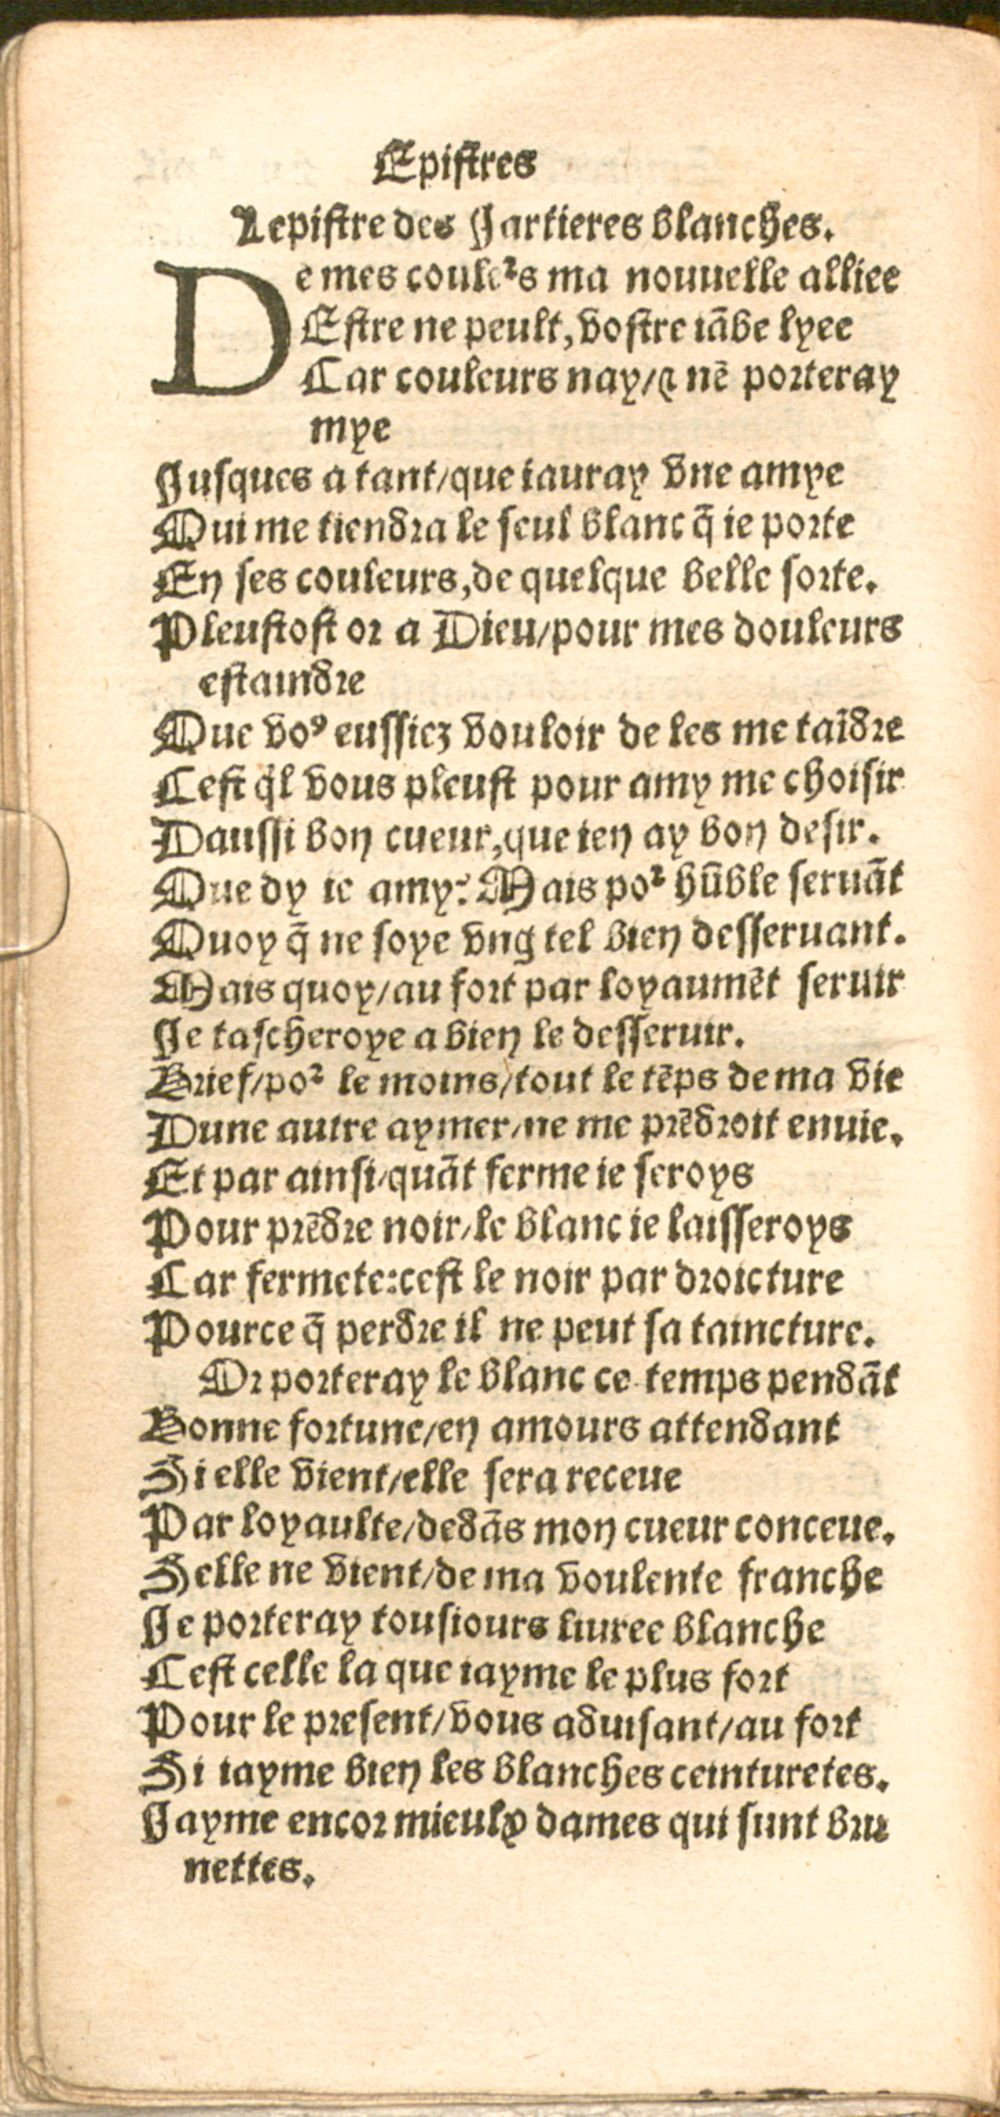 Epistres
Lepistre des Jartieres blanches.
De mes couleꝰrs ma nouuelle alliee
Estre ne peult, vostre iābe lyee
Car couleurs nay/⁊ nē porteray
mye
Jusques a tant/que iauray vne amye
Qui me tiendra le seul blanc q̄ ie porte
En ses couleurs, de quelque belle sorte.
Pleustost or a Dieu/pour mes douleurs
estaindre
Que voꝰ eussiez vouloir de les me taĩdre
Cest q̇l vous pleust pour amy me choisir
Daussi bon cueur, que ien ay bon desir.
Que dy ie amy? Mais poᷣ hūble seruāt
Quoy q̄ ne soye vng tel bien desseruant.
Mais quoy/au fort par loyaumēt seruir
Je tascheroye a bien le desseruir.
Brief/poᷣ le moins/tout le tēps de ma vie
Dune autre aymer/ne me prēdroit enuie.
Et par ainsi/quāt ferme ie seroys
Pour prēdre noir/le blanc ie laisseroys
Car fermete:cest le noir par droicture
Pource q̄ perdre il ne peut sa taincture.
Or porteray le blanc ce temps pendāt
Bonne fortune/en amours attendant
Si elle vient/elle sera receue
Par loyaulte/dedās mon cueur conceue.
Selle ne vient/de ma voulente franche
Je porteray tousiours liuree blanche
Cest celle la que iayme le plus fort
Pour le present/vous aduisant/au fort
Si iayme bien les blanches ceinturetes.
Jayme encor mieulx dames qui sunt bru
nettes.